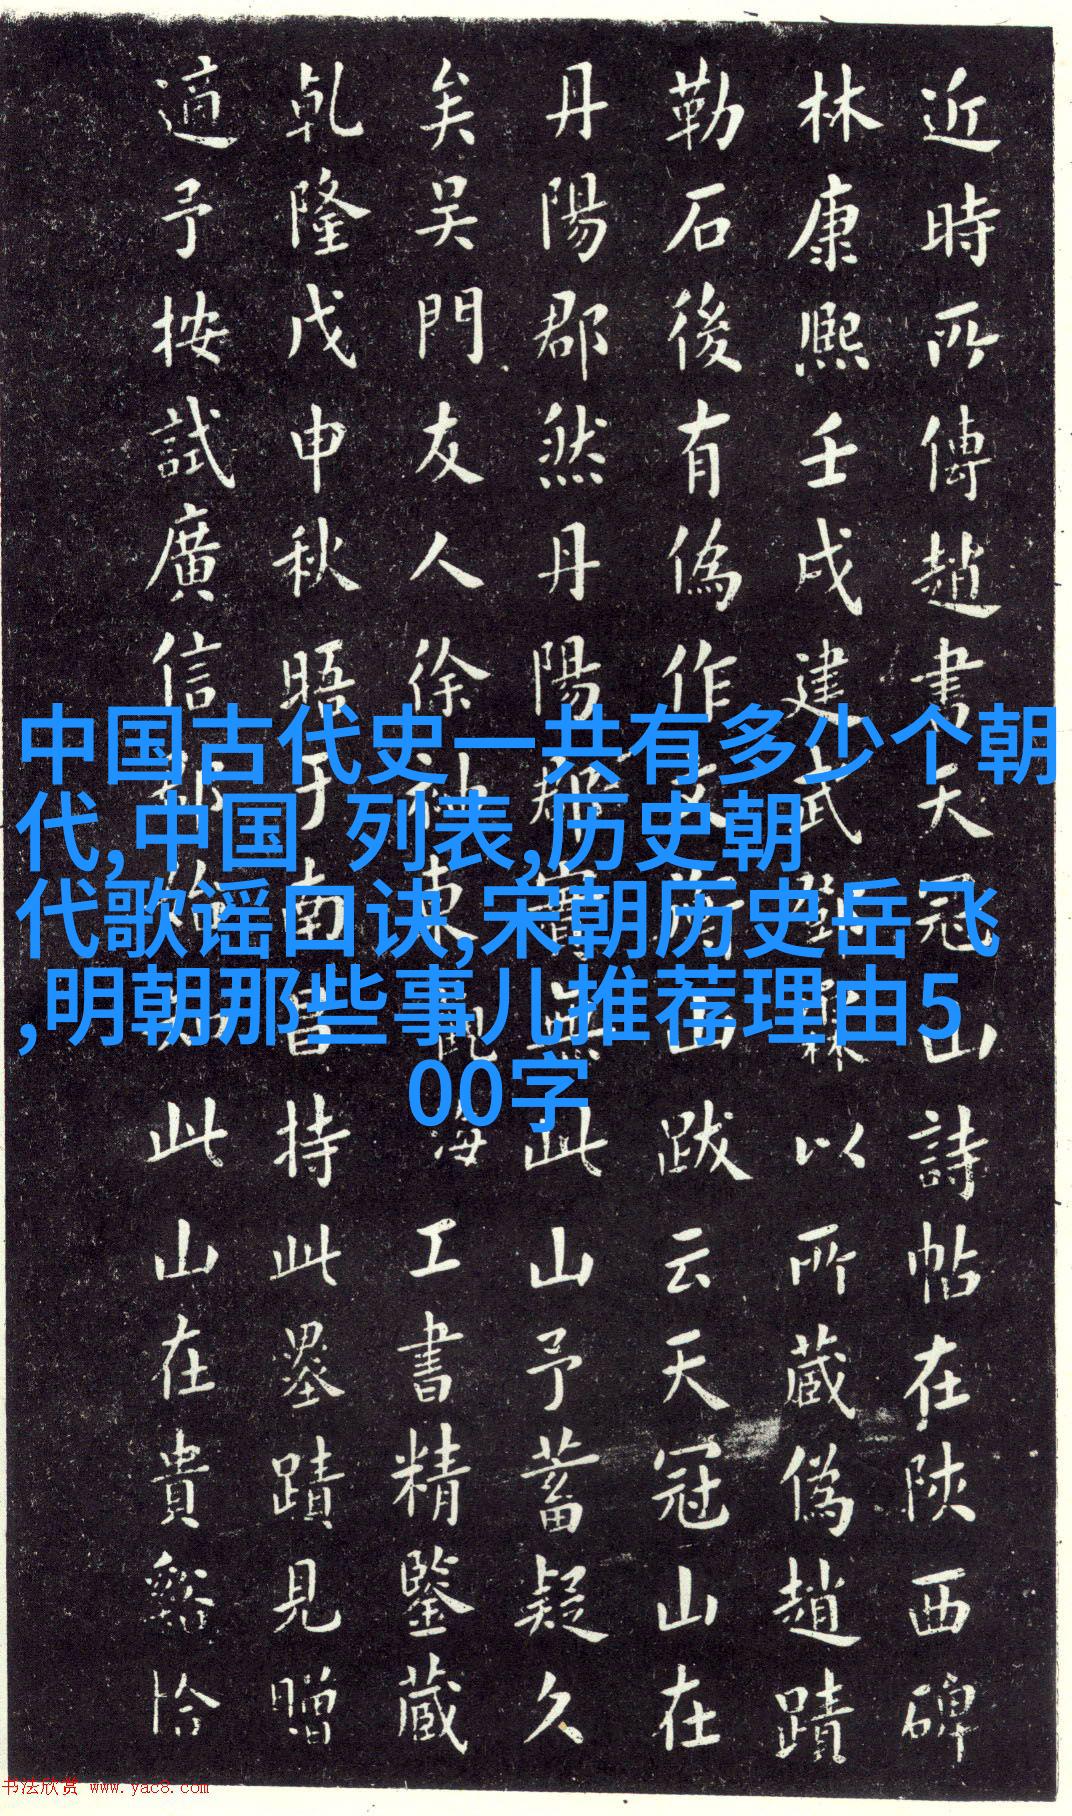 近時所傳趙書天冠山詩帖在陝西碑
林康熙壬戌建武以所蔵偽趙蹟
勒石後有偽作文衡山跋云天冠山在
丹陽郡然丹陽郡實無此山予蓄疑久
矣吴門友人徐東觀海工書精鑒蔵
乹隆戊申秋晤于南昌持此墨蹟見贈
適予按試廣信郡始知此山在貴谿恰
中国古代史一共有多少个朝
代,中国 列表,历史朝
代歌谣口诀,宋朝历史岳飞
,明朝那些事儿推荐理由5
00字
书法欣赏 www.yac8.com